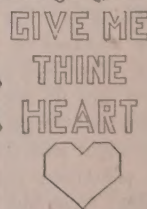 GIVE ME
THINE
HEART